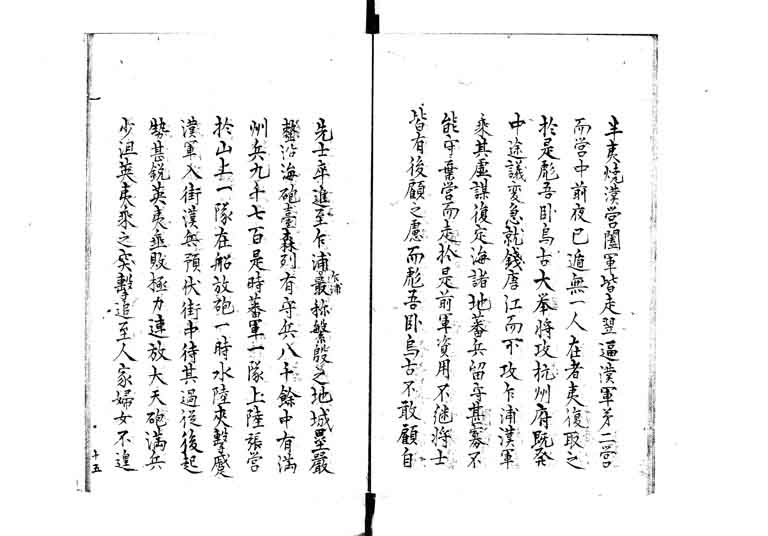 半夷燒漢營闔軍皆走翌逼漢軍第二營
而營中前夜已遁無一人在者夷復取之
於是彪吾卧烏古大挙將攻杭州府既発
中途議変急就錢唐江而不攻乍浦漢軍
乘其虛謀復定海諸地蕃兵留守甚寡不
能守棄營而走於是前軍資用不継將士
皆有後顧之慮而彪吾卧烏古不敢顧自
先士卒進至乍浦最称繁殷之地城壘嚴
乍浦
整沿海砲臺森列有守兵八千餘中有滿
州兵九千七百是時蕃軍一隊上陸張營
於山上一隊在船放砲一時水陸夾擊蹙
漢軍入街漢兵預伏街中待其過從後起
勢甚銳英夷乘敗極力連放大天砲滿兵
少沮英夷乘之突擊追至人家婦女不遑
十五